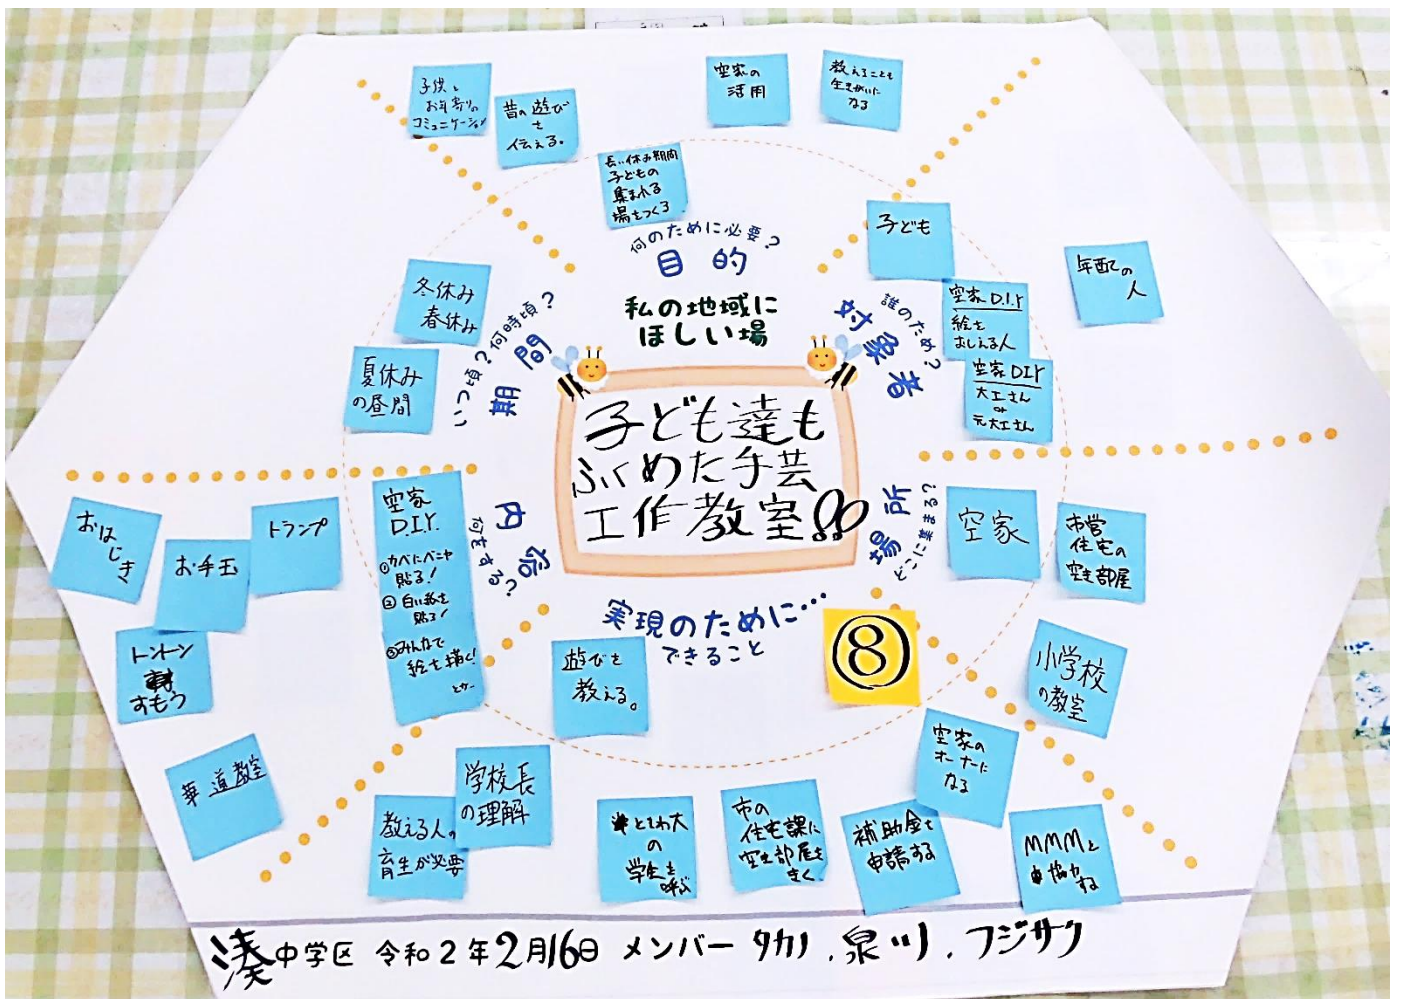 子供と
お年寄りの
コミュニケーション
昔の遊び
を
伝える。
空家の
活用
教えることも
生きがいに
なる
長い休み期間
子どもの
集まれる
場をつくる
何のために必要?
目的
私の地域に
ほしい場
子ども達も
ふくめた手芸
工作教室!!
誰のため?
対象者
子ども
年配の
人
空家D.I.Y
絵を
おしえる人
空家DIY
大工さん
or
元大工さん
いつ頃?何時頃?
期間
冬休み
春休み
夏休み
の昼間
どこに集まる?
場所
空家
市営
住宅の
空き部屋
小学校
の教室
何をする?
内容
空家
D.I.Y.
①カベにベニヤ
貼る!
②白い紙を
貼る!
③みんなで
絵を描く!
とか…
おはじき
お手玉
トランプ
トントン
すもう
華道教室
実現のために…
できること
⑧
遊びを
教える。
学校長
の理解
教える人の
育生が必要
ときわ大
の
学生を
呼ぶ
市の
住宅課に
空き部屋を
きく
補助金を
申請する
空家の
オーナーに
なる
MMMと
協力する
湊中学区 令和2年2月16日 メンバー タカノ.泉川.フジサク